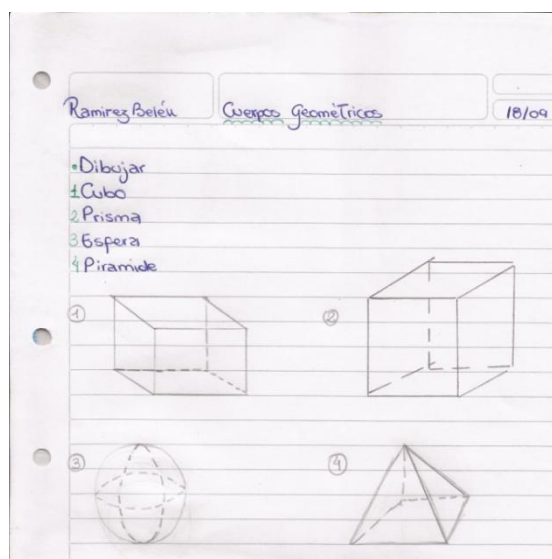 Ramirez Belén
Cuerpos Geométricos
18/09
•Dibujar
1 Cubo
2 Prisma
3 Esfera
4 Piramide
1
2
3
4